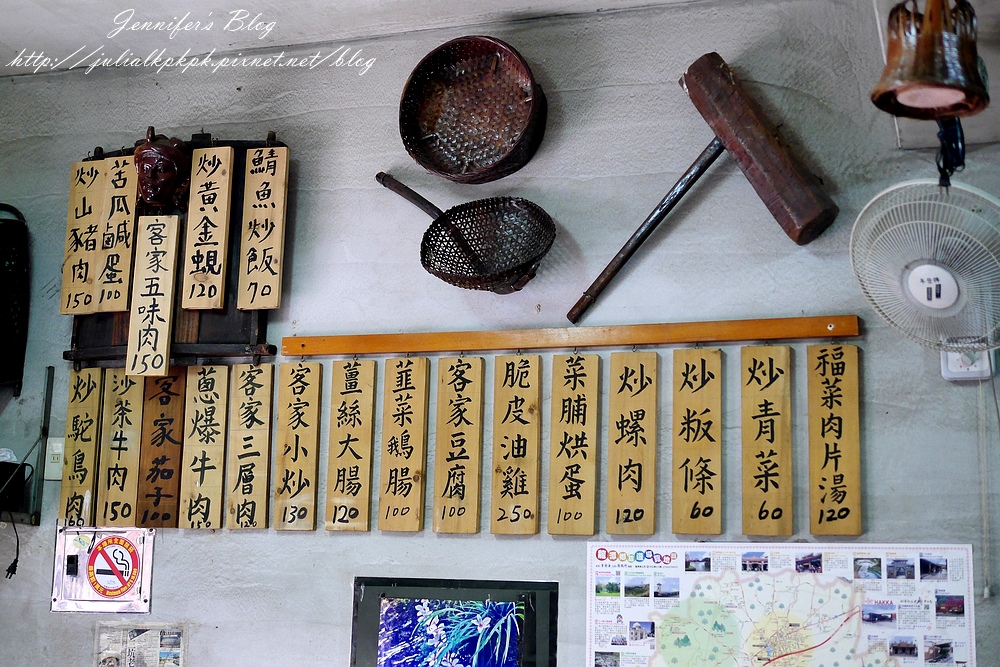 Jennifer's Blog
http://julialkpkpk.pixnet.net/blog
炒山豬肉 150
苦瓜鹹蛋 100
客家五味肉 150
炒黃金蜆 120
鯖魚炒飯 70
炒駝鳥肉 160
沙茶牛肉 150
客家茄子 100
蔥爆牛肉 150
客家三層肉
客家小炒 130
薑絲大腸 120
韮菜鵝腸 100
客家豆腐 100
脆皮油雞 250
菜脯烘蛋 100
炒螺肉 120
炒粄條 60
炒青菜 60
福菜肉片湯 120
HAKKA